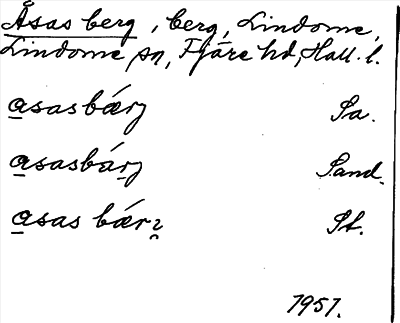 Åsas berg, berg, Lindome,
Lindome sn, Fjäre hd, Hall. l.
a̲sasbǽrj Sa.
a̲sasbárj Sand.
a̲sas bǽrȷ St.
1951.